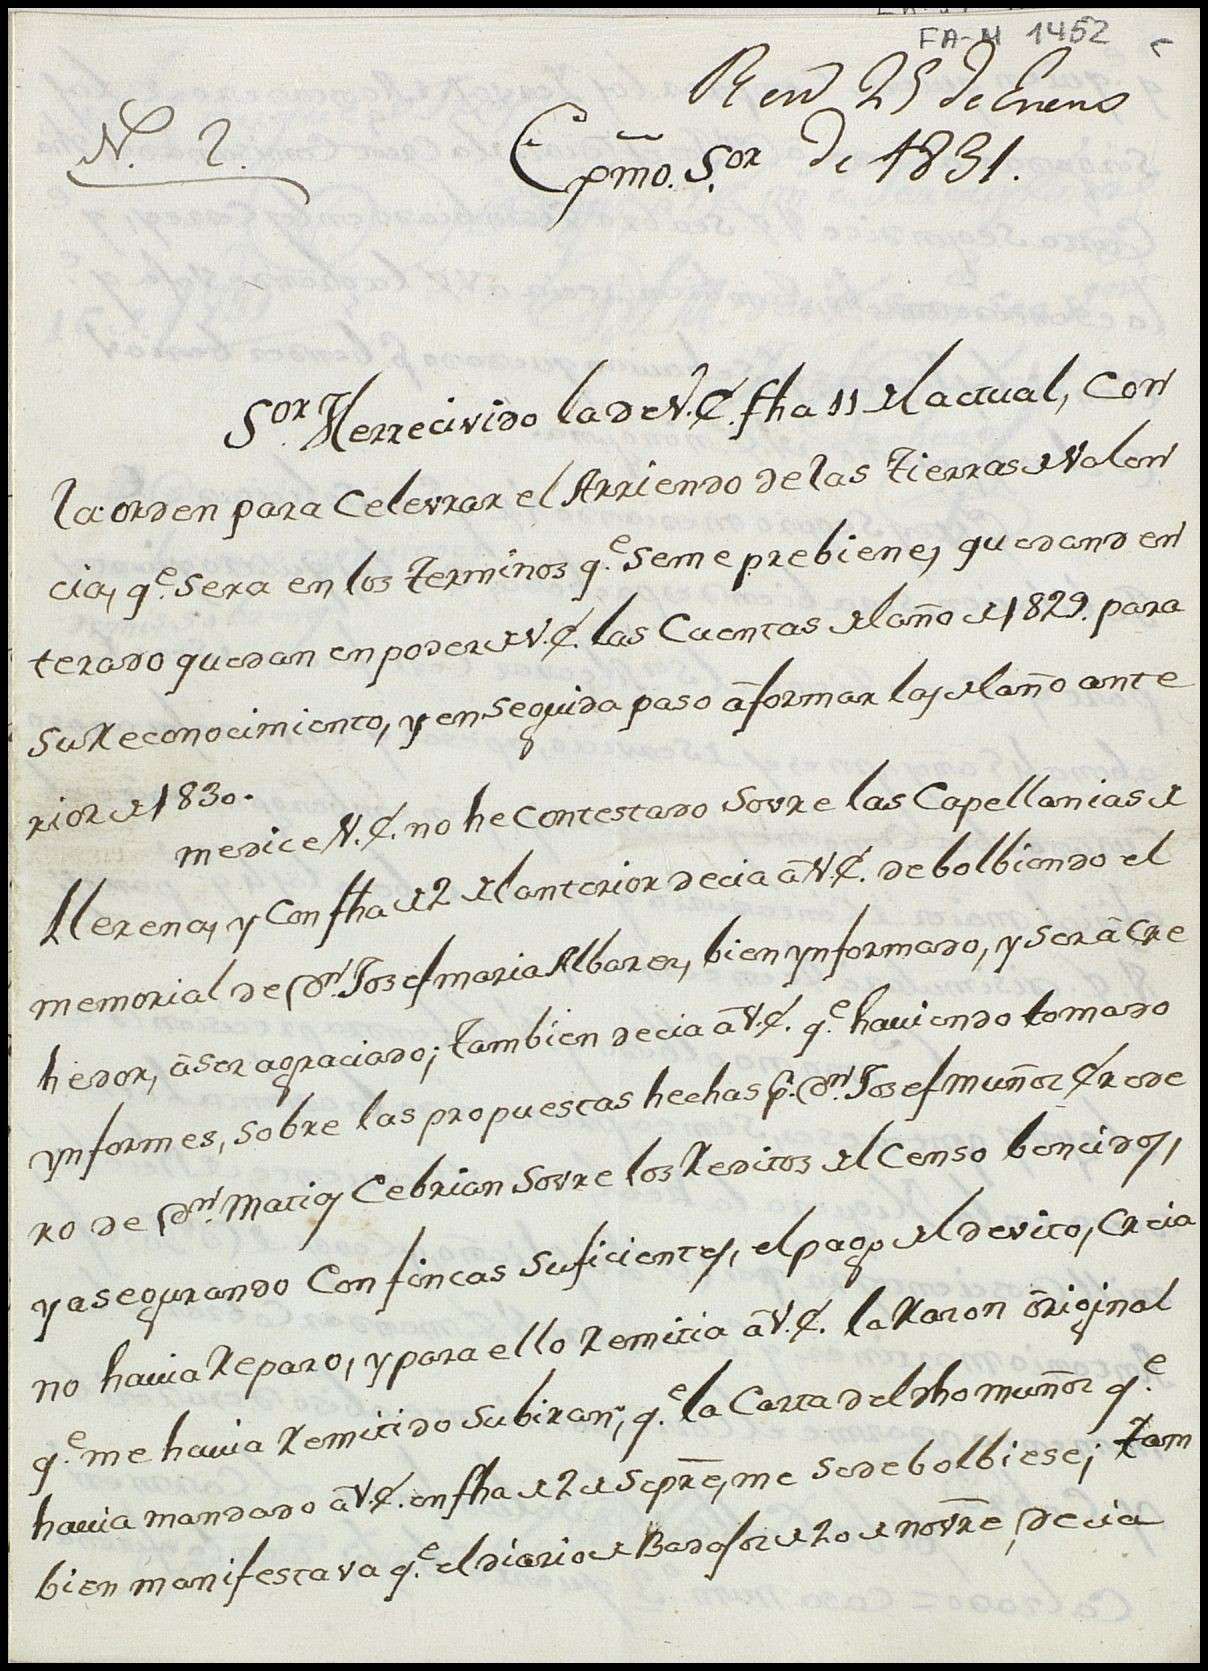 FA-M 1452
Rend 25 de Enero
de 1831.
N. 2.
Exmo. Sor.
Sor. Herrecivido la de V.E. fha 11 del actual, con
la orden para Celevrar el Arriendo de las Tierras de Valen
cia, qe. sera en los Terminos qe. seme prebiene, quedand en
terado quedan en poder de V.E. las Cuentas del año de 1829. para
su Reconocimiento, y en seguida paso á formar las del año ante
rior de 1830.
me dice V.E. no he Contestado Sovre las Capellanias de
Llerena, y Con fha de 2 del anterior decia á V.E. debolbiendo el
memorial de Dn. Josef maria Albarez, bien ynformado, y ser á Cre
hedor, á ser agraciado; Tambien decia á V.E. qe. haviendo tomado
ynformes, sobre las propuestas hechas pr. Dn. Josef muñoz Erede
ro de Dn. Matias Cebrian Sovre los Reditos del Censo bencidos,
y asegurando Con fincas suficientes, el pago del devito, Creia
no havia Reparo, y para ello Remitia á V.E. la Razon original
qe. me havia Remitido Subiran, qe. la Carta del dho muñoz qe.
havia mandado á V.E. en fha de 2 de Sepre, me se debolbiese; Tam
bien manifestava qe. el diario de Badajoz de 20 de novre, decia